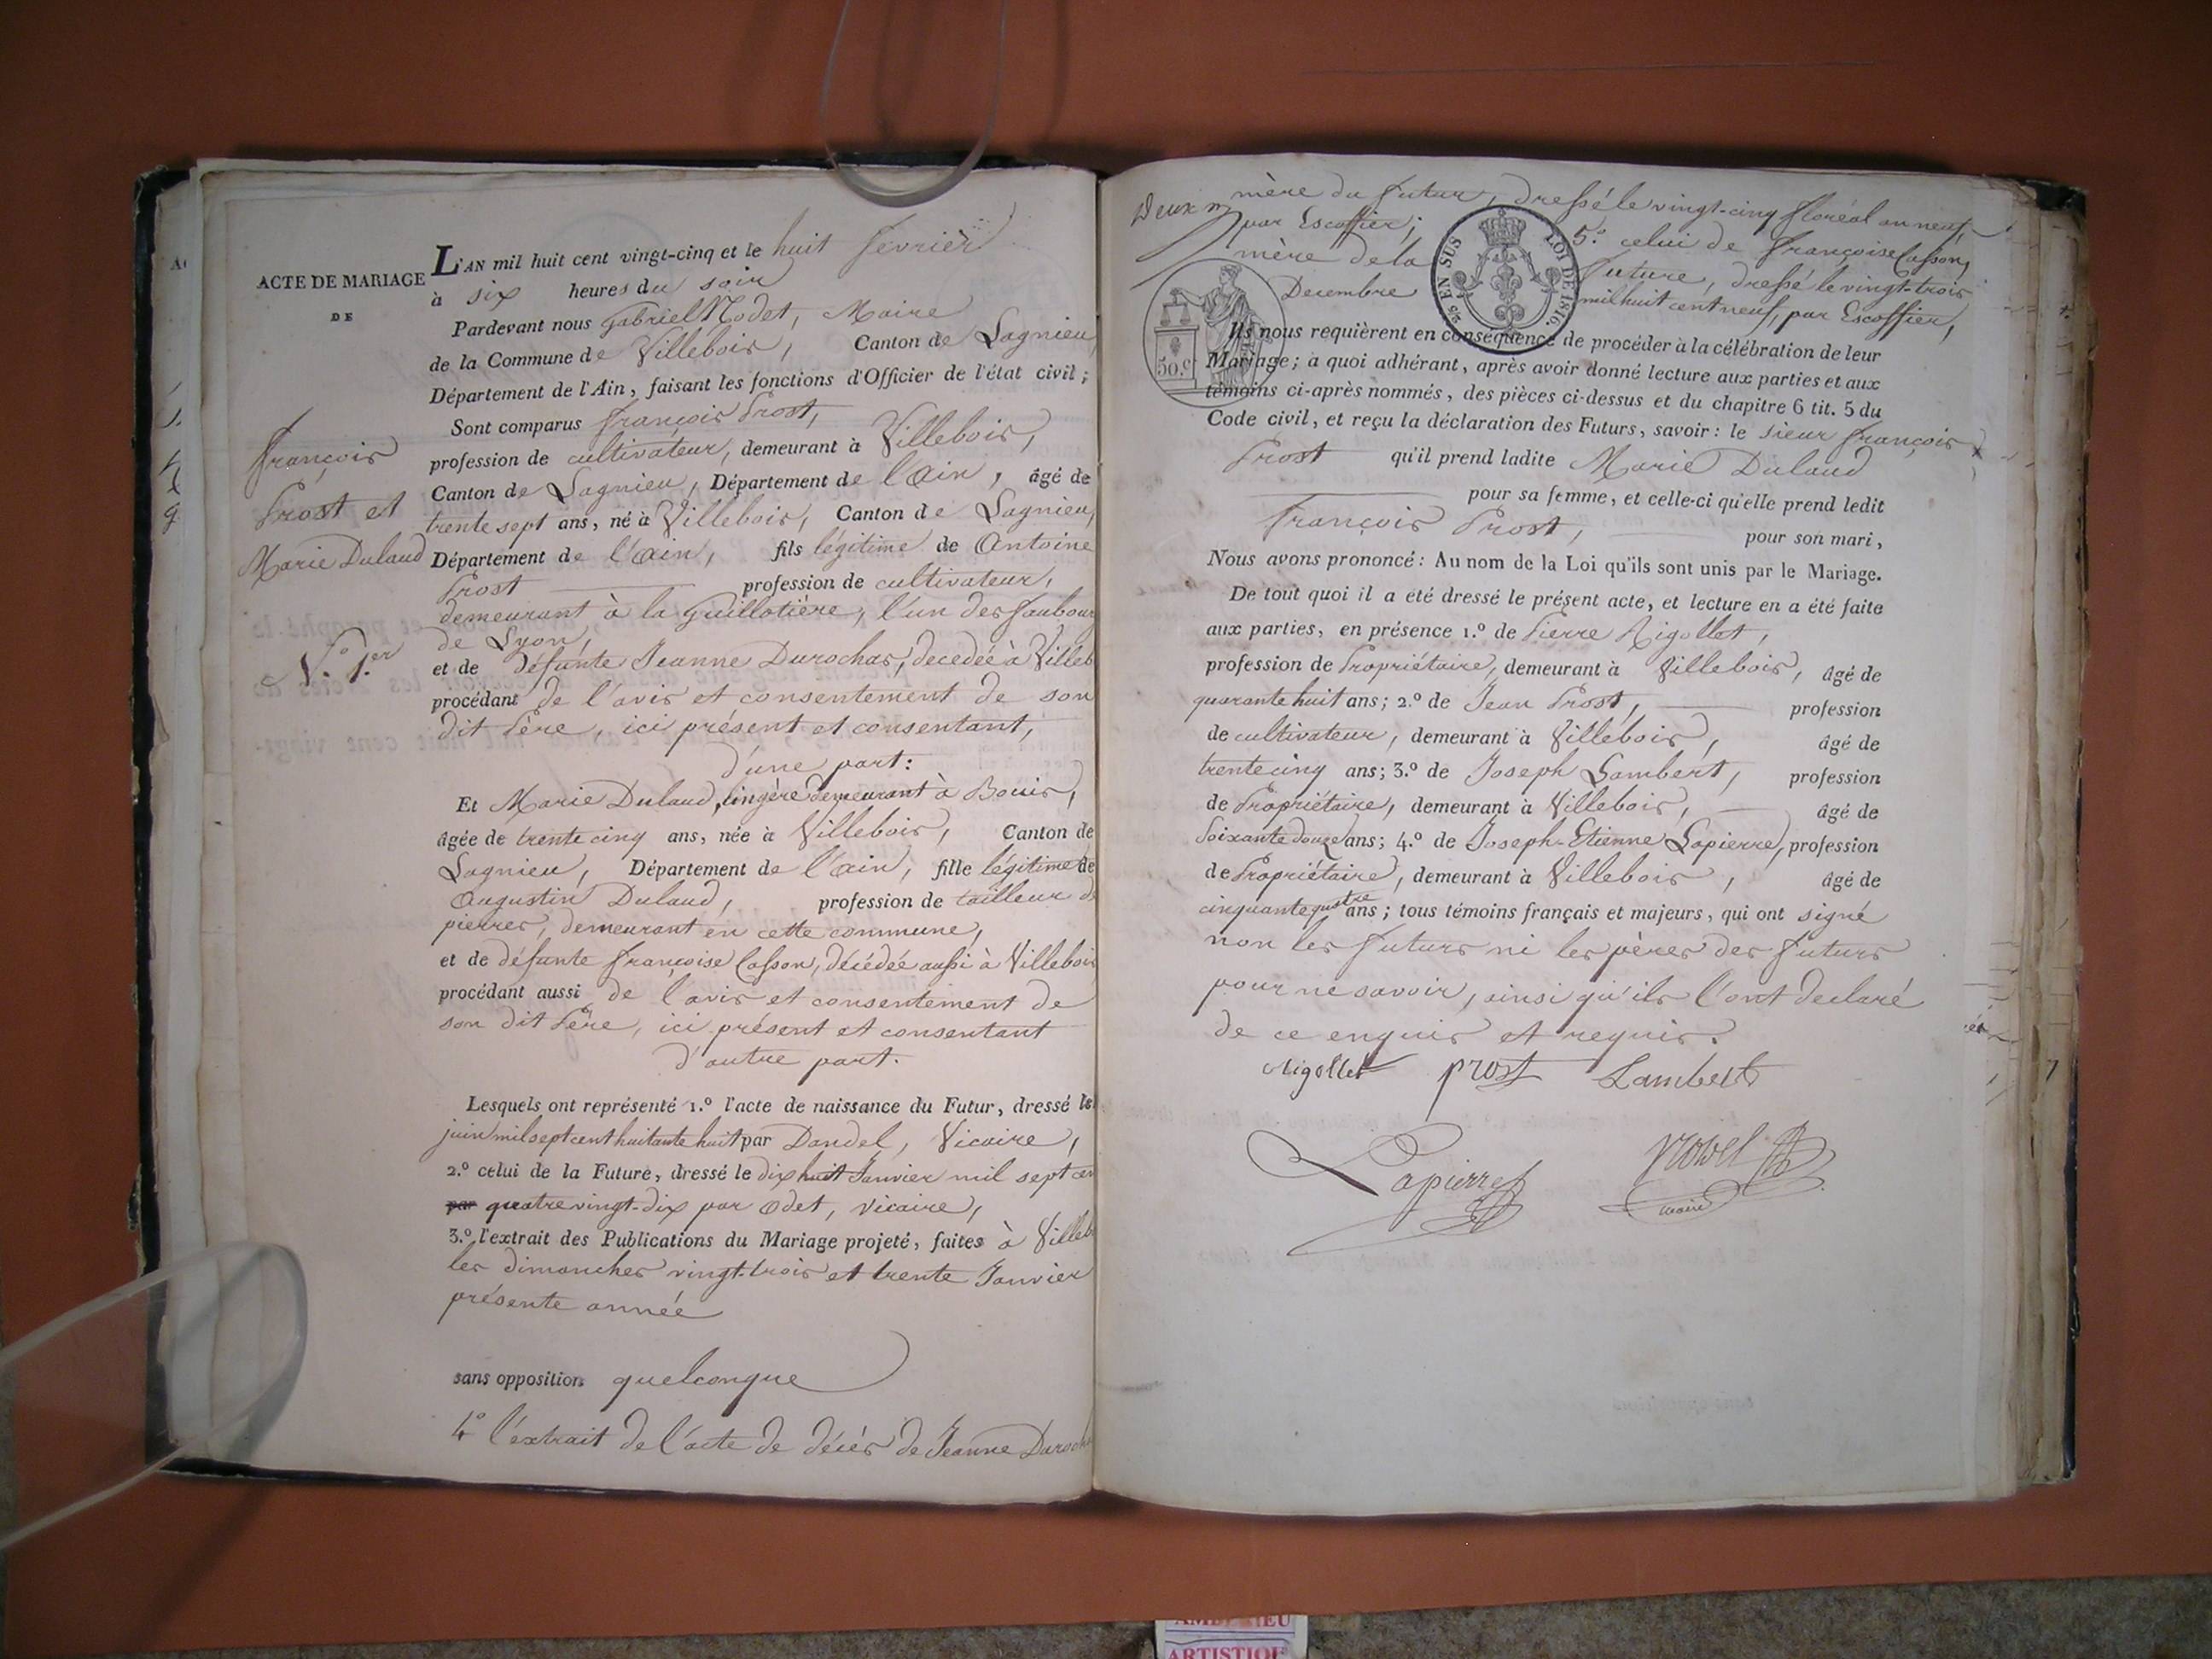 ACTE DE MARIAGE
DE
François
Prost et
Marie Dulaud
N.º 1.er
L'AN mil huit cent vingt-cinq et le huit fevrier
à six heures du soir
Pardevant nous Gabriel Nodet, Maire
de la Commune de Villebois, Canton de Lagnieu
Département de l'Ain, faisant les fonctions d'Officier de l'état civil;
Sont comparus françois Prost,
profession de cultivateur, demeurant à Villebois,
Canton de Lagnieu, Département de l'Ain, âgé de
trente sept ans, né à Villebois, Canton de Lagnieu,
Département de l'Ain, fils légitime de Antoine
Prost profession de cultivateur,
demeurant à la Guillotière, l'un des faubour
de Lyon,
et de défunte Jeanne Durochas, decedée à Villeb
procédant de l'avis et consentement de son
dit Père, ici présent et consentant,
d'une part:
Et Marie Dulaud, lingère demeurant à Bouis,
âgée de trente cinq ans, née à Villebois, Canton de
Lagnieu, Département de l'Ain, fille légitime de
Augustin Dulaud, profession de tailleur de
pierres, demeurant en cette commune,
et de défunte françoise Casson, décédée aussi à Villebois
procédant aussi de l'avis et consentement de
son dit Père, ici présent et consentant
d'autre part.
Lesquels ont représenté 1.º l'acte de naissance du Futur, dressé le
juin mil sept cent huitante huit par Dandel, Vicaire,
2.º celui de la Future, dressé le dix huit Janvier mil sept cen
par quatre vingt-dix par Odet, vicaire,
3.º l'extrait des Publications du Mariage projeté, faites à Villeb
les dimanches vingt-trois et trente Janvier
présente année
sans opposition quelconque
4º l'extrait de l'acte de décès de Jeanne Duroch
Deux
mère du futur, dressé le vingt-cinq floréal an neuf,
par Escoffier; 5.º celui de françoise Casson,
mère de la future, dressé le vingt-trois
Decembre mil huit cent neuf, par Escoffier,
2/5 EN SUS LOI DE 1816.
50.C
Ils nous requièrent en conséquence de procéder à la célébration de leur
Mariage; à quoi adhérant, après avoir donné lecture aux parties et aux
témoins ci-après nommés, des pièces ci-dessus et du chapitre 6 tit. 5 du
Code civil, et reçu la déclaration des Futurs, savoir: le sieur françois
Prost qu'il prend ladite Marie Dulaud
pour sa femme, et celle-ci qu'elle prend ledit
françois Prost, pour son mari,
Nous avons prononcé: Au nom de la Loi qu'ils sont unis par le Mariage.
De tout quoi il a été dressé le présent acte, et lecture en a été faite
aux parties, en présence 1.º de Pierre Rigollet,
profession de Propriétaire, demeurant à Villebois, âgé de
quarante huit ans; 2.º de Jean Prost, profession
de cultivateur, demeurant à Villebois, âgé de
trente cinq ans; 3.º de Joseph Lambert, profession
de Propriétaire, demeurant à Villebois, âgé de
soixante douze ans; 4.º de Joseph-Etienne Lapierre, profession
de Propriétaire, demeurant à Villebois, âgé de
cinquante quatre ans; tous témoins français et majeurs, qui ont signé
non les futurs ni les pères des futurs
pour ne savoir, ainsi qu'ils l'ont declaré
de ce enquis et requis.
Rigollet prost Lambert
Lapierre
maire
AMBERIEU
ARTISTIQUE